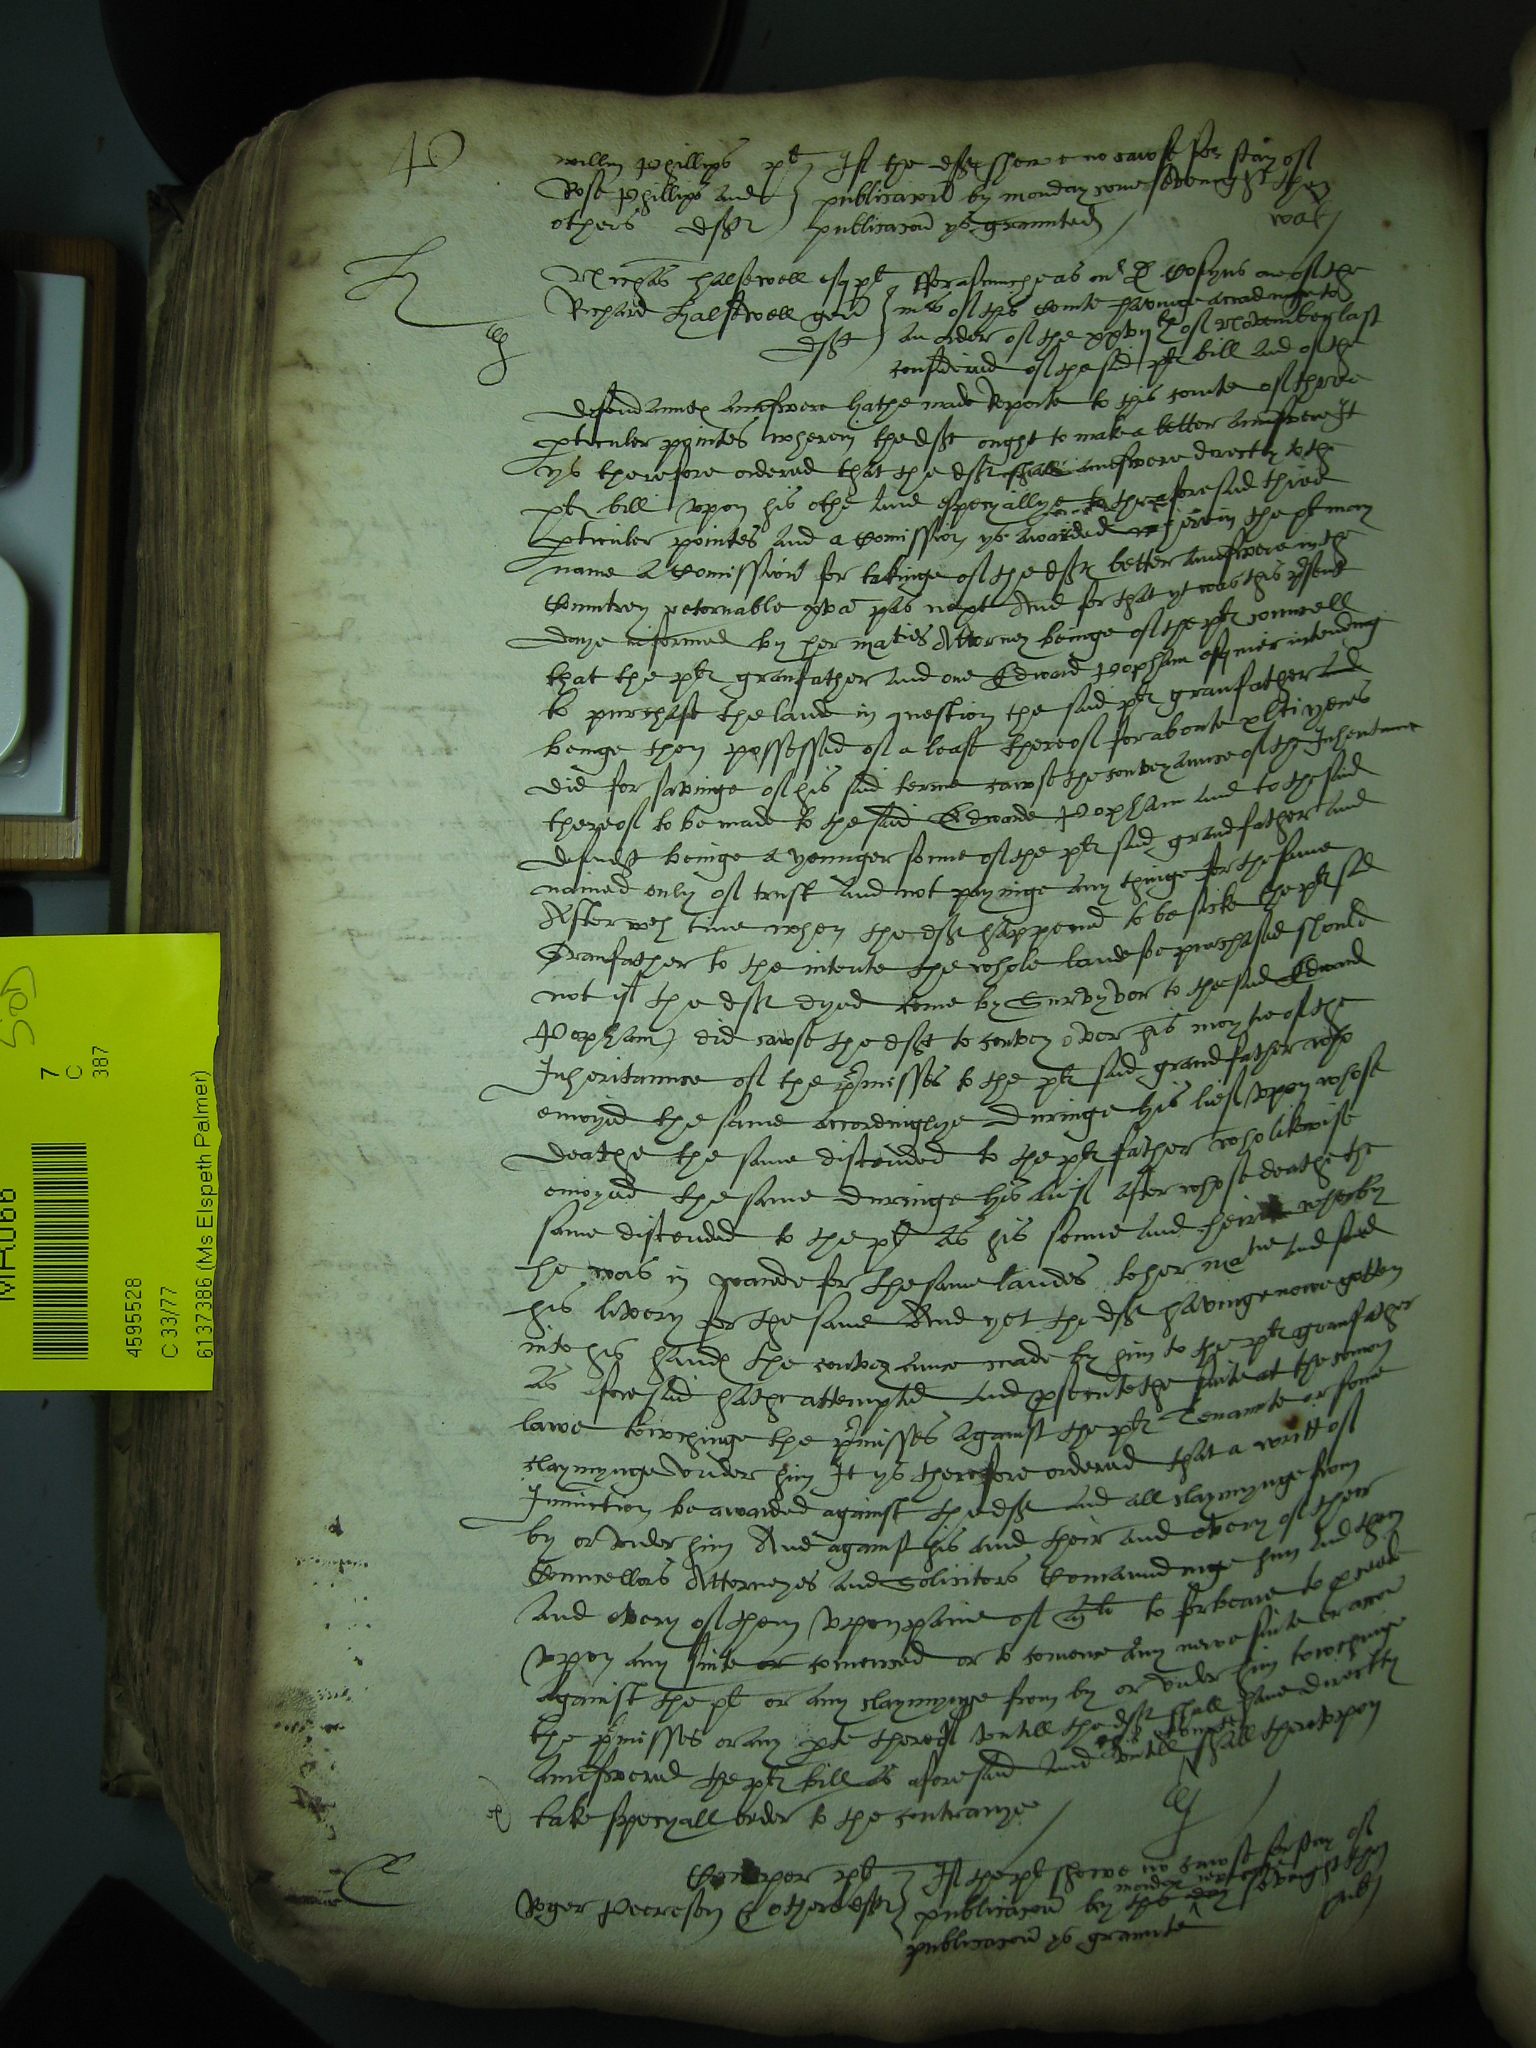 willm Phillips pl
Rose Phillips and
others deft
If the deftes shewe no cawse for stay of
publicacon by monday come sevenight then
publicacon ys graunted
H
Nichas Halswell esq pl
Richard Halswell gent
deft
Forasmuche as mr D
one of the
mrs of this Courte havinge accordinge to
an order of the xxvth of November last
considered of the said pl bill and of the
defendauntes aunswere hathe made Reporte to this courte of three
pticuler pointes wherein the deft ought to make a better aunswere It
ys therefore ordered that the deft shall aunswere directly to the
pl bill vpon his othe and especyallye to the aforesaid three
pticuler pointes and a Comission ys awarded wherein the pl may
name a Comission for takinge of the deft better aunswere in the
Countrey retornable
pas next And for that yt was this psent
daye informed by her maties Attorney beinge of the pl councell
that the pl granfather and one Edward Popham esquier intending
to purchase the lande in question the said pl granfather and
beinge then possessed of a lease thereof for aboute xlti yeres
did for savinge of his said terme cawse the conveyaunce of the Inheritance
thereof to be made to the said Edwarde Popham and to the said
defendt beinge a younger sonne of the pl said grandfather and
named only of trust and not payinge any thinge for the same
After wch time when the deft happened to be sicke the pl said
Granfather to the intente the whole lande so purchased should
not if the deft dyed come by Survyvor to the said Edward
Popham did cawse the deft to convey over his moytie of the
Inheritaunce of the pmisses to the pl said grandfather who
enioyed the same accordinglye duringe his lief vpon whose
deathe the same discended to the pl father who likewise
enioyed the same duringe his lief after whose deathe the
same discended to the pl as his sonne and heire wherby
he was in warde for the same landes to her matie and sued
his livery for the same And yet the deft havinge nowe gotten
into his handes the conveyaunce made by him to the pl granfather
as aforesaid hathe attempted and psecutethe suite at the comon
lawe towchinge the pmisses against the pl Tenaunte or some
claymynge vnder him It ys therefore ordered that a writt of
Iniunction be awarded against the deft and all claymynge from
by or vnder him And against his and their and every of their
Councellors Attorneyes and Solicitors Comaundinge him and them
and every of them vpon paine of
li to forbeare to pceed
vpon any suite or comenced or to comence any newe suite or accon
against the pl or any claymynge from by or vnder him towchinge
the pmisses or any pte thereof vntill the deft shall have directly
aunswered the pl bill as aforesaid and vntill this Courte shall therevpon
take specyall order to the contrarye
Cowper pl
Roger Peereson & others deft
If the pl shewe no cawse for stay of
publicacon by this day monday next sevenight then
publicacon ys graunted
505
7
C
387
MR066
4595528
C 33/77
6137386 (Ms Elspeth Palmer)